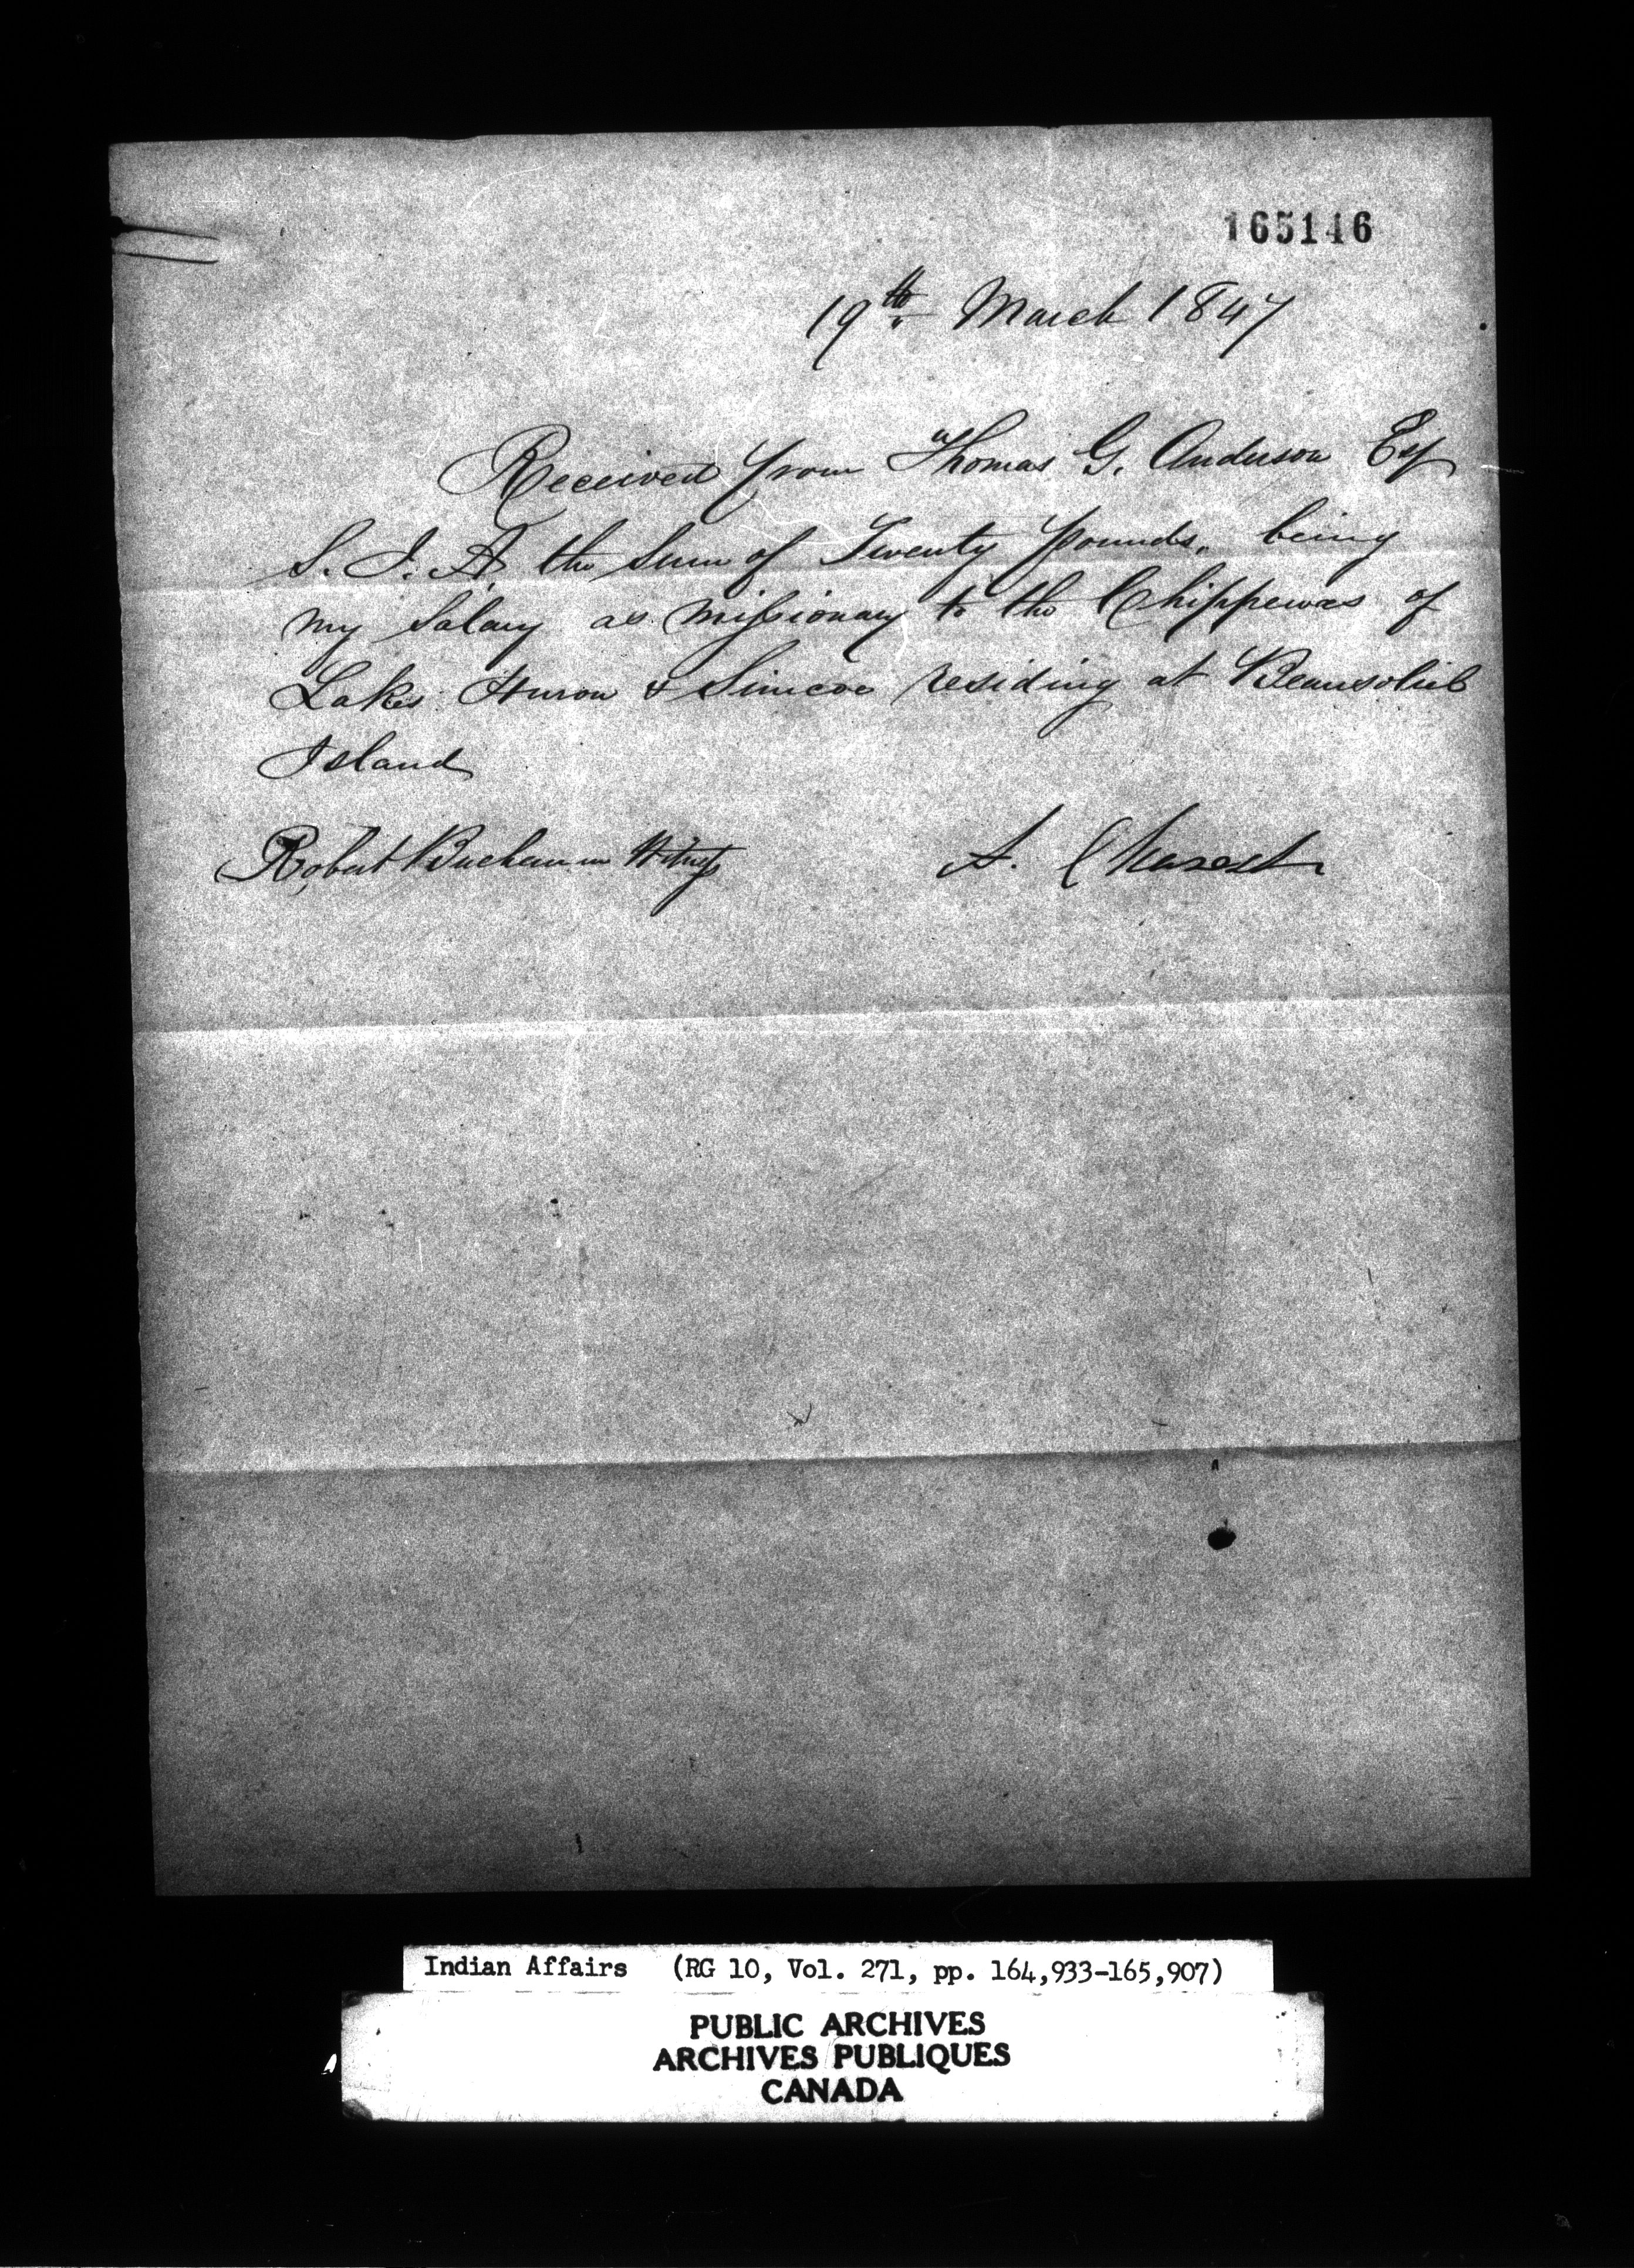 165146
19th March 1847
Received from Thomas G. Anderson Esq
S. I. A. the Sum of Twenty pounds, being
my Salary as missionary to the Chippewas of
Lakes Huron & Simcoe residing at Beausoliel
Island
Robert Buchanan Witness
A. Charest
Indian Affairs (RG 10, Vol. 271, pp. 164,933-165,907)
PUBLIC ARCHIVES
ARCHIVES PUBLIQUES
CANADA